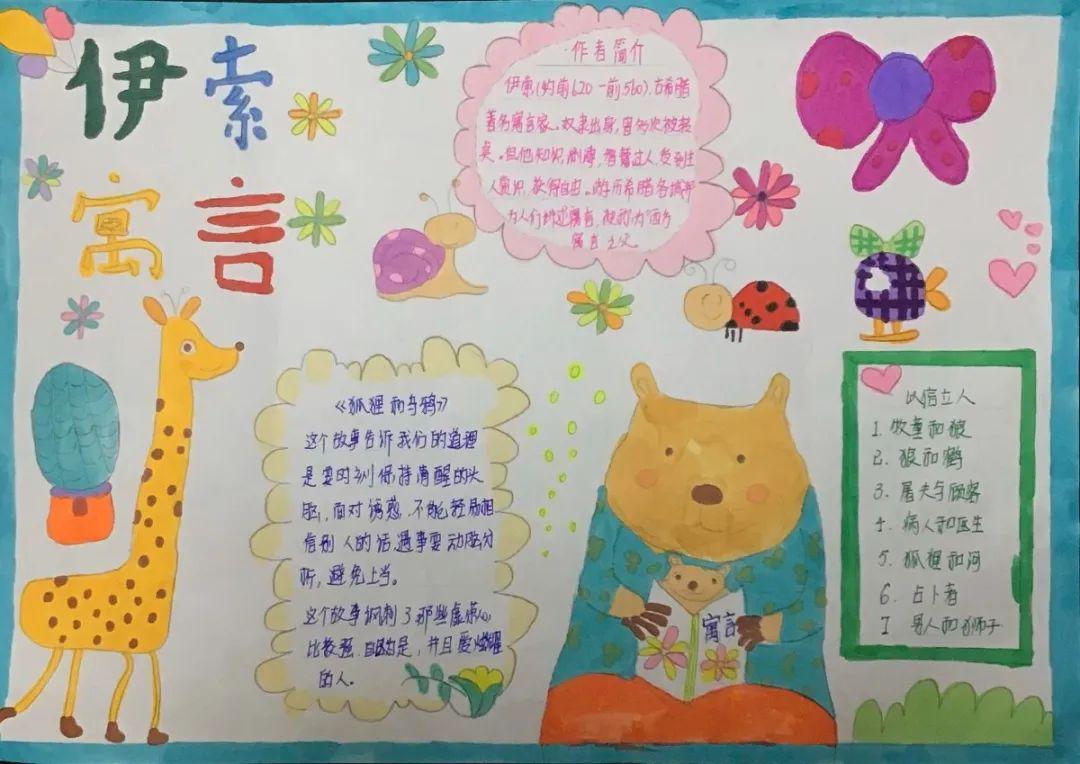 伊索
寓言
作者简介
伊索(约前620-前560).古希腊
著名寓言家。奴隶出身,曾多次被转
卖。但他知识渊博,智慧过人,受到主
人赏识,获得自由。游历希腊各城邦
为人们讲述寓言,被称为"西方
寓言之父
《狐狸和乌鸦》
这个故事告诉我们的道理
是要时刻保持清醒的头
脑,面对诱惑,不能轻易相
信别人的话,遇事要动脑分
析,避免上当。
这个故事讽刺了那些虚荣心
比较强.自以为是,并且爱炫耀
的人。
寓言
以信立人
1.牧童和狼
2.狼和鹤
3.屠夫与顾客
4.病人和医生
5.狐狸和河
6.占卜者
7 男人和狮子